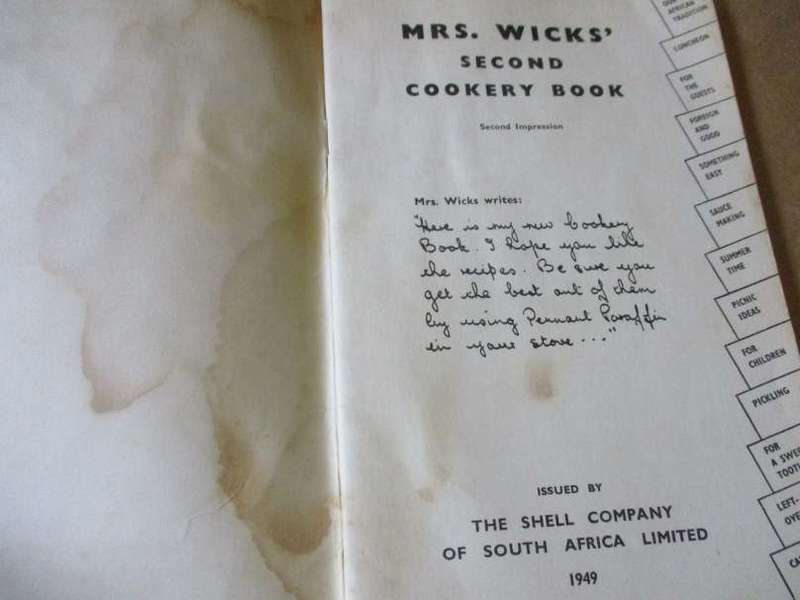 MRS. WICKS'
SECOND
COOKERY BOOK
Second Impression
Mrs. Wicks writes:
"Here is my new Cookery
Book. I hope you like
the recipes. Be sure you
get the best out of them
by using Pennant Paraffin
in your stove..."
ISSUED BY
THE SHELL COMPANY
OF SOUTH AFRICA LIMITED
1949
AFRICAN
TRADITION
LUNCHEON
FOR
THE
GUESTS
FOREIGN
AND
GOOD
SOMETHING
EASY
SAUCE
MAKING
SUMMER
TIME
PICNIC
IDEAS
FOR
CHILDREN
PICKLING
FOR
A SWEE
TOOTH
LEFT-
OVE
CA